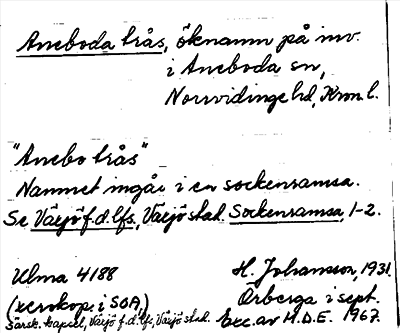 Aneboda trås, öknamn på inv.
i Aneboda sn,
Norrvidinge hd, Kron. l.
"Anebo trås"
Namnet ingår i en sockenramsa.
Se Växjö f.d. lfs, Växjö stad. Sockenramsa, 1-2.
Ulma 4188 H. Johansson, 1931.
(xerokop. i SOA) Örberga i sept.
särsk. kapsel, Växjö f.d. lfs, Växjö stad. Exc. av H.D.E. 1967.